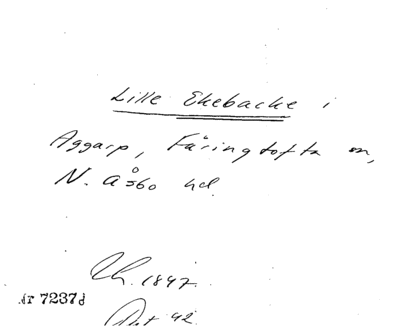 Lille Ekebacke i
Aggarp, Färingtofta sn,
N. Åsbo hd
Uh. 1847.
Nr 7237d
Art 42